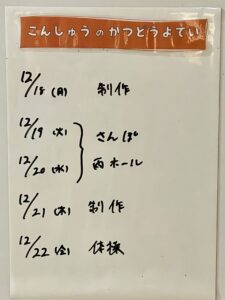 こんしゅうのかつどうよてい
12/18 (月) 制作
12/19 (火) さんぽ
12/20 (水) 西ホール
12/21 (木) 制作
12/22 (金) 体操